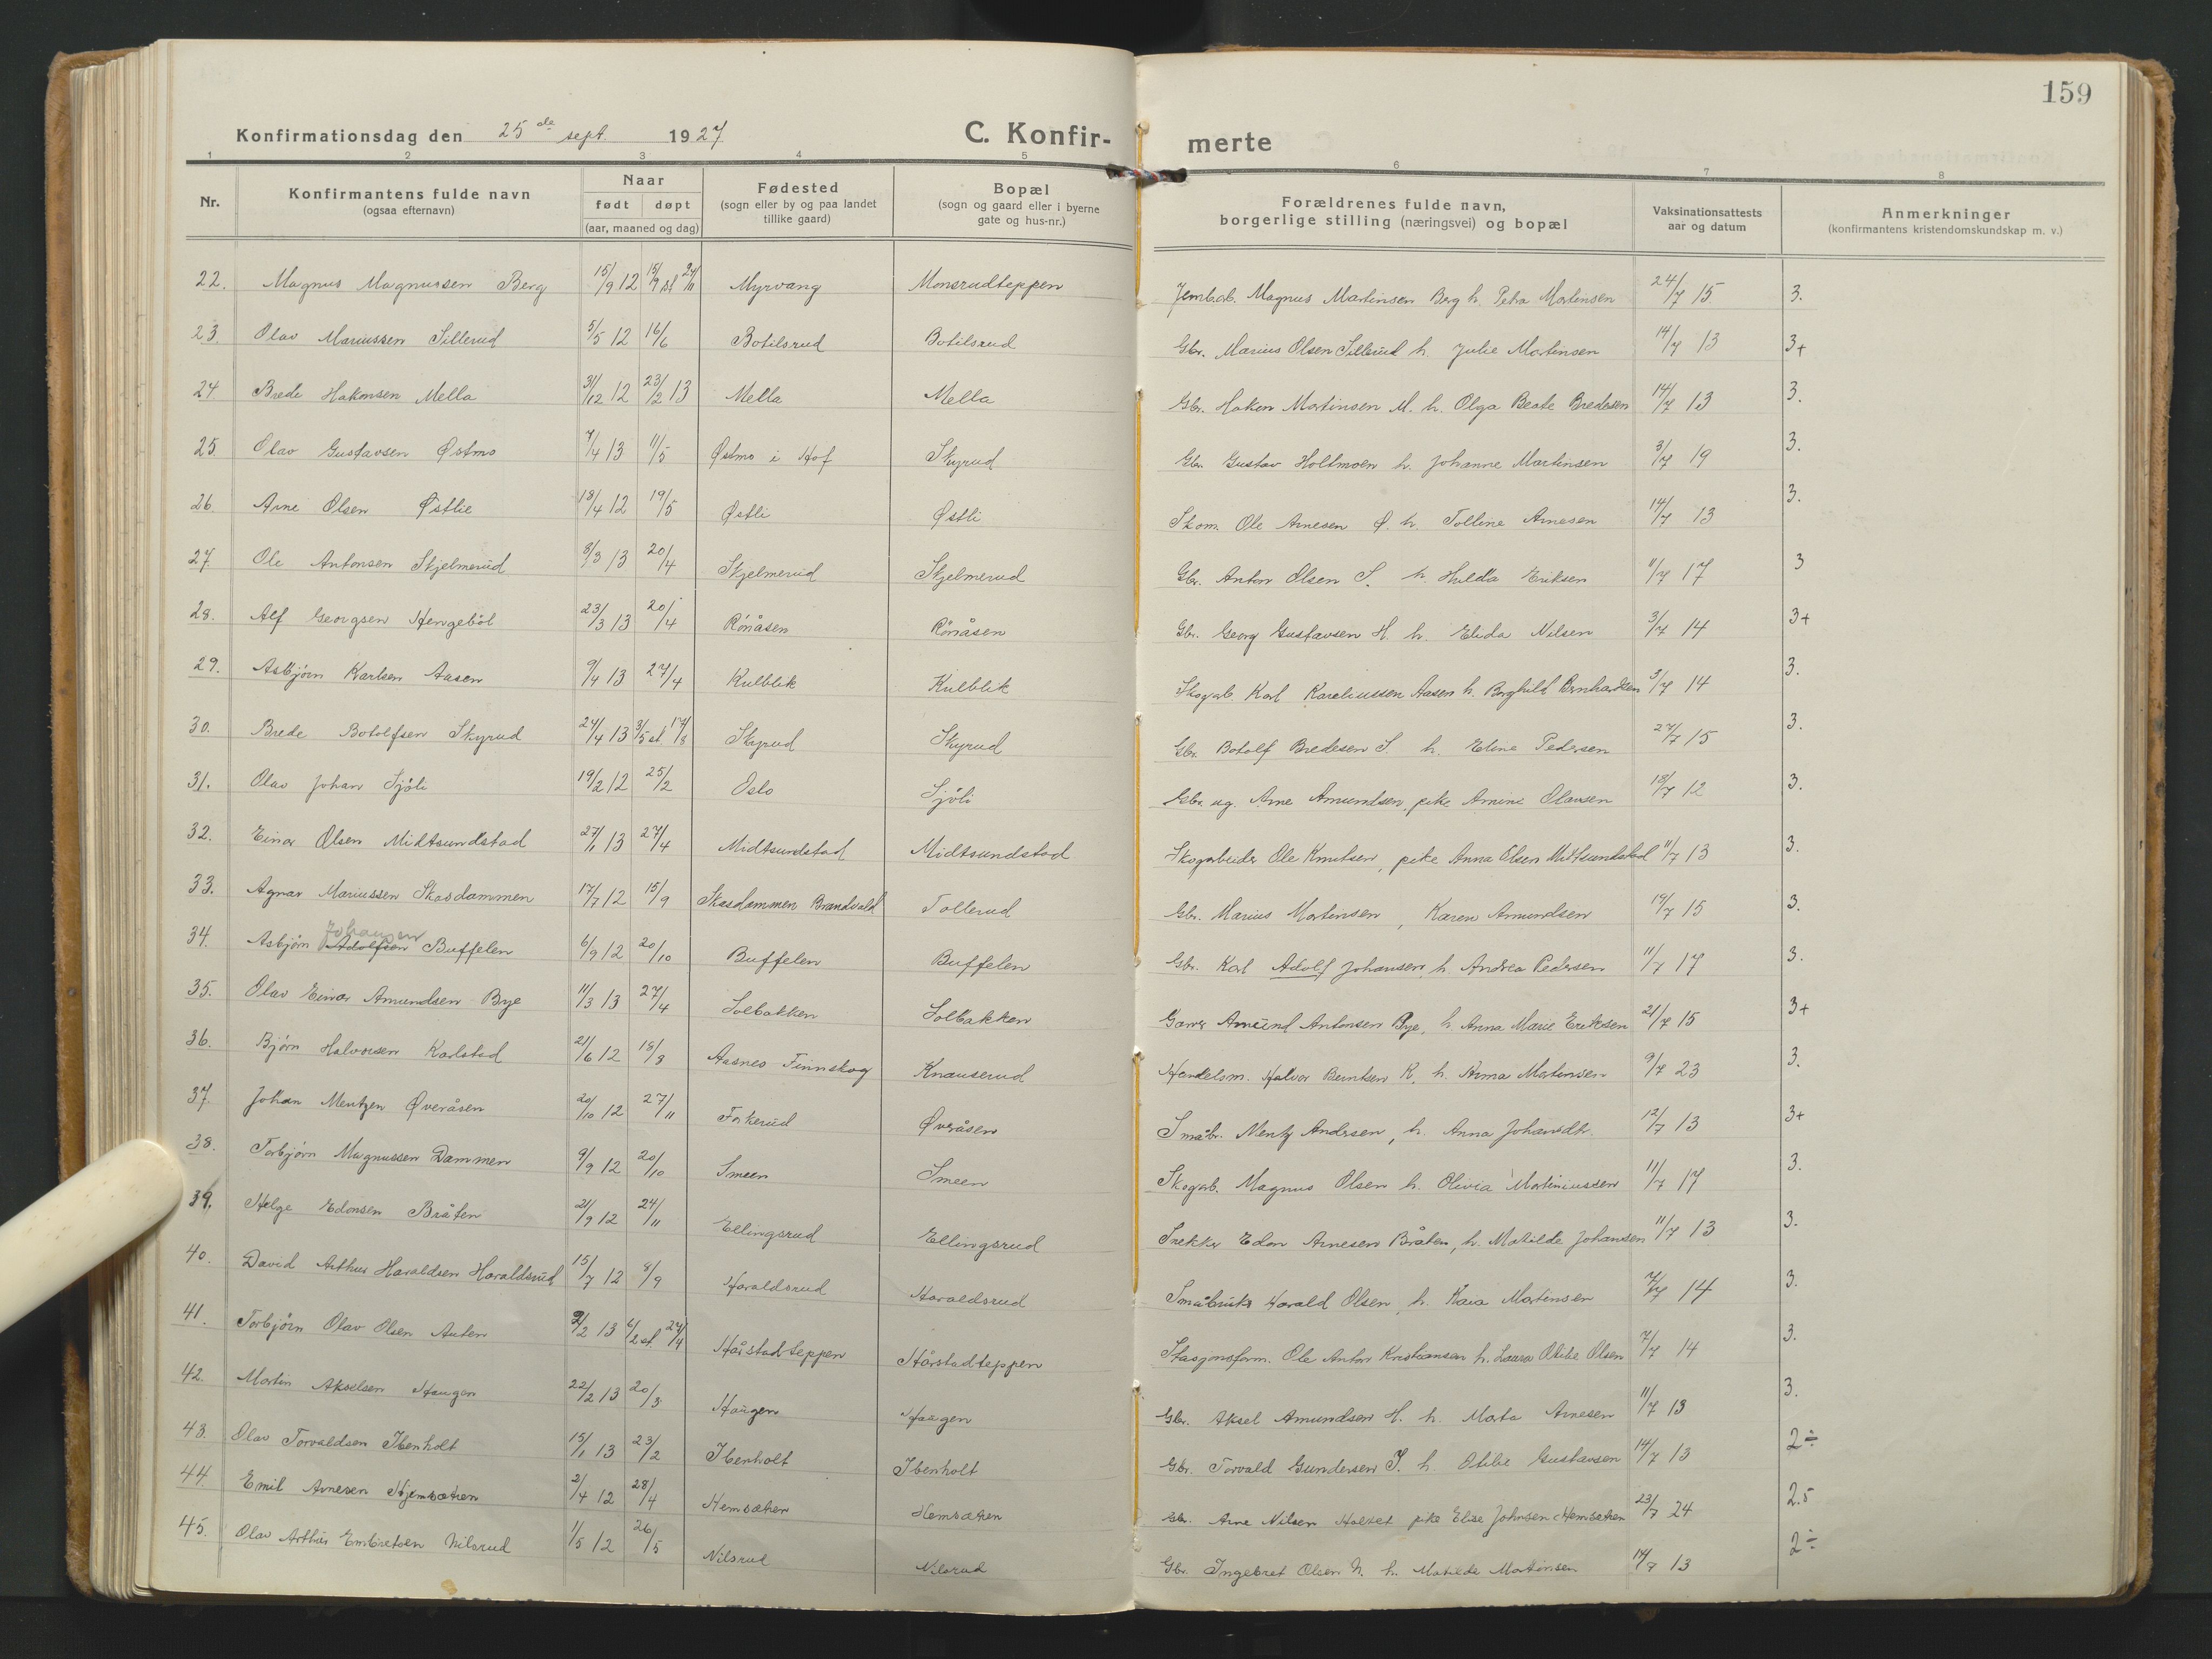 159
Konfirmationsdag den 25 de sept. 1927 C. Konfir- merte
1 2 3 4 5 6 7 8
Nr. Konfirmantens fulde navn (ogsaa efternavn) Naar født døpt (aar, maaned og dag) Fødested (sogn eller by og paa landet tillike gaard) Bopæl (sogn og gaard eller i byerne gate og hus-nr.) Forældrenes fulde navn, borgerlige stilling (næringsvei) og bopæl Vaksinationsattests aar og datum Anmerkninger (konfirmantens kristendomskundskap m. v.)
22. Magnus Magnussen Berg 15/9 12 15/9 st 24/11 Myrvang Monsrudteppen Jernb.arb. Magnus Martinsen Berg h. Petra Mortensen 24/7 15 3.
23. Olav Mariussen Sillerud 5/5 12 16/6 Botilsrud Botilsrud Gbr. Marius Olsen Sillerud h. Julie Mortensen 14/7 13 3+
24 Brede Hakonsen Mella 31/12 12 23/2 13 Mella Mella Gbr. Hakon Martinsen M. h. Olga Beate Bredesen 14/7 13 3.
25. Olav Gustavsen Østmo 7/4 13 11/5 Østmo i Hof Skyrud Gbr. Gustav Holtmoen h. Johanne Martinsen 3/7 19 3.
26. Arne Olsen Østlie 18/4 12 19/5 Østli Østli Skom. Ole Arnesen Ø. h. Tolline Arnesen 14/7 13 3.
27. Ole Antonsen Skjelmerud 8/3 13 20/4 Skjelmerud Skjelmerud Gbr. Anton Olsen S. h. Hulda Eriksen 11/7 17 3
28. Alf Georgsen Hengeböl 23/3 13 20/4 Rönåsen Rönåsen Gbr. Georg Gustavsen H. h. Elida Nilsen 3/7 14 3+
29. Asbjörn Karlsen Aasen 9/4 13 27/4 Kulblik Kulblik Skogarb. Karl Kareliussen Aasen h. Borghild Bernhardsen 3/7 14 3.
30. Brede Botolfsen Skyrud 24/4 13 3/5 st 17/8 Skyrud Skyrud Gbr. Botolf Bredesen S. h. Eline Pedersen 27/7 15 3.
31. Olav Johan Sjöli 19/2 12 25/2 Oslo Sjöli Gbr. ug. Arne Amundsen, pike Amine Olausen 18/7 12 3.
32. Einar Olsen Midtsundstad 27/1 13 27/4 Midtsundstad Midtsundstad Skogarbeider Ole Knutsen, pike Anna Olsen Midtsundstad 11/7 13 3.
33. Agnar Mariussen Skasdammen 17/7 12 15/9 Skasdammen Brandvald Tollerud Gbr. Marius Mortensen, Karen Amundsen 19/7 15 3.
Johansen
34. Asbjörn Adolfsen Buffelen 6/9 12 20/10 Buffelen Buffelen Gbr. Karl Adolf Johansen h. Andrea Pedersen 11/7 17 3.
35. Olav Einar Amundsen Bye 11/3 13 27/4 Solbakken Solbakken Garver Amund Antonsen Bye, h. Anna Marie Eriksen 21/7 15 3+
36. Björn Halvorsen Karlstad 21/6 12 18/8 Aasnes Finnskog Knauserud Handelsm. Halvor Berntsen K. h. Anna Mortensen 9/7 23 3.
37. Johan Mentzen Øveråsen 20/10 12 27/11 Fakerud Øveråsen Småbr. Mentz Andersen, h. Anna Johansdtr. 12/7 13 3+
38. Torbjörn Magnussen Dammen 9/9 12 20/10 Smeen Smeen Skogarb. Magnus Olsen h. Olivia Martiniussen 11/7 17 3.
39. Helge Edonsen Bråten 21/9 12 24/11 Ellingsrud Ellingsrud Snekker Edon Arnesen Bråten, h. Matilde Johansen 11/7 13 3.
40. David Arthur Haraldsen Haraldsrud 15/7 12 8/9 Haraldsrud Haraldsrud Småbruker Harald Olsen, h. Kaia Mortensen 7/7 14 3.
41. Torbjörn Olav Olsen Auten 2/2 13 6/2 st. 27/4 Hårstadteppen Hårstadteppen Stasjonsform. Ole Anton Kristiansen h. Laura Otilie Olsen 7/7 14 3.
42. Martin Akselsen Haugen 22/2 13 20/3 Haugen Haugen Gbr. Aksel Amundsen H. h. Marta Arnesen 11/7 13 3.
43. Olav Torvaldsen Ibenholt 15/1 13 23/2 Ibenholt Ibenholt Gbr. Torvald Gundersen I. h. Otilie Gustavsen 14/7 13 2÷
44. Emil Arnesen Hjemsætren 2/4 12 28/4 Hemsætren Hemsætren Gbr. Arne Nilsen Holtet pike Elise Johnsen Hemsætren 23/7 24 2.5
45. Olav Arthur Embretsen Nilsrud 1/5 12 26/5 Nilsrud Nilsrud Gbr. Ingebret Olsen N. h. Matilde Mortensen 14/7 13 2÷